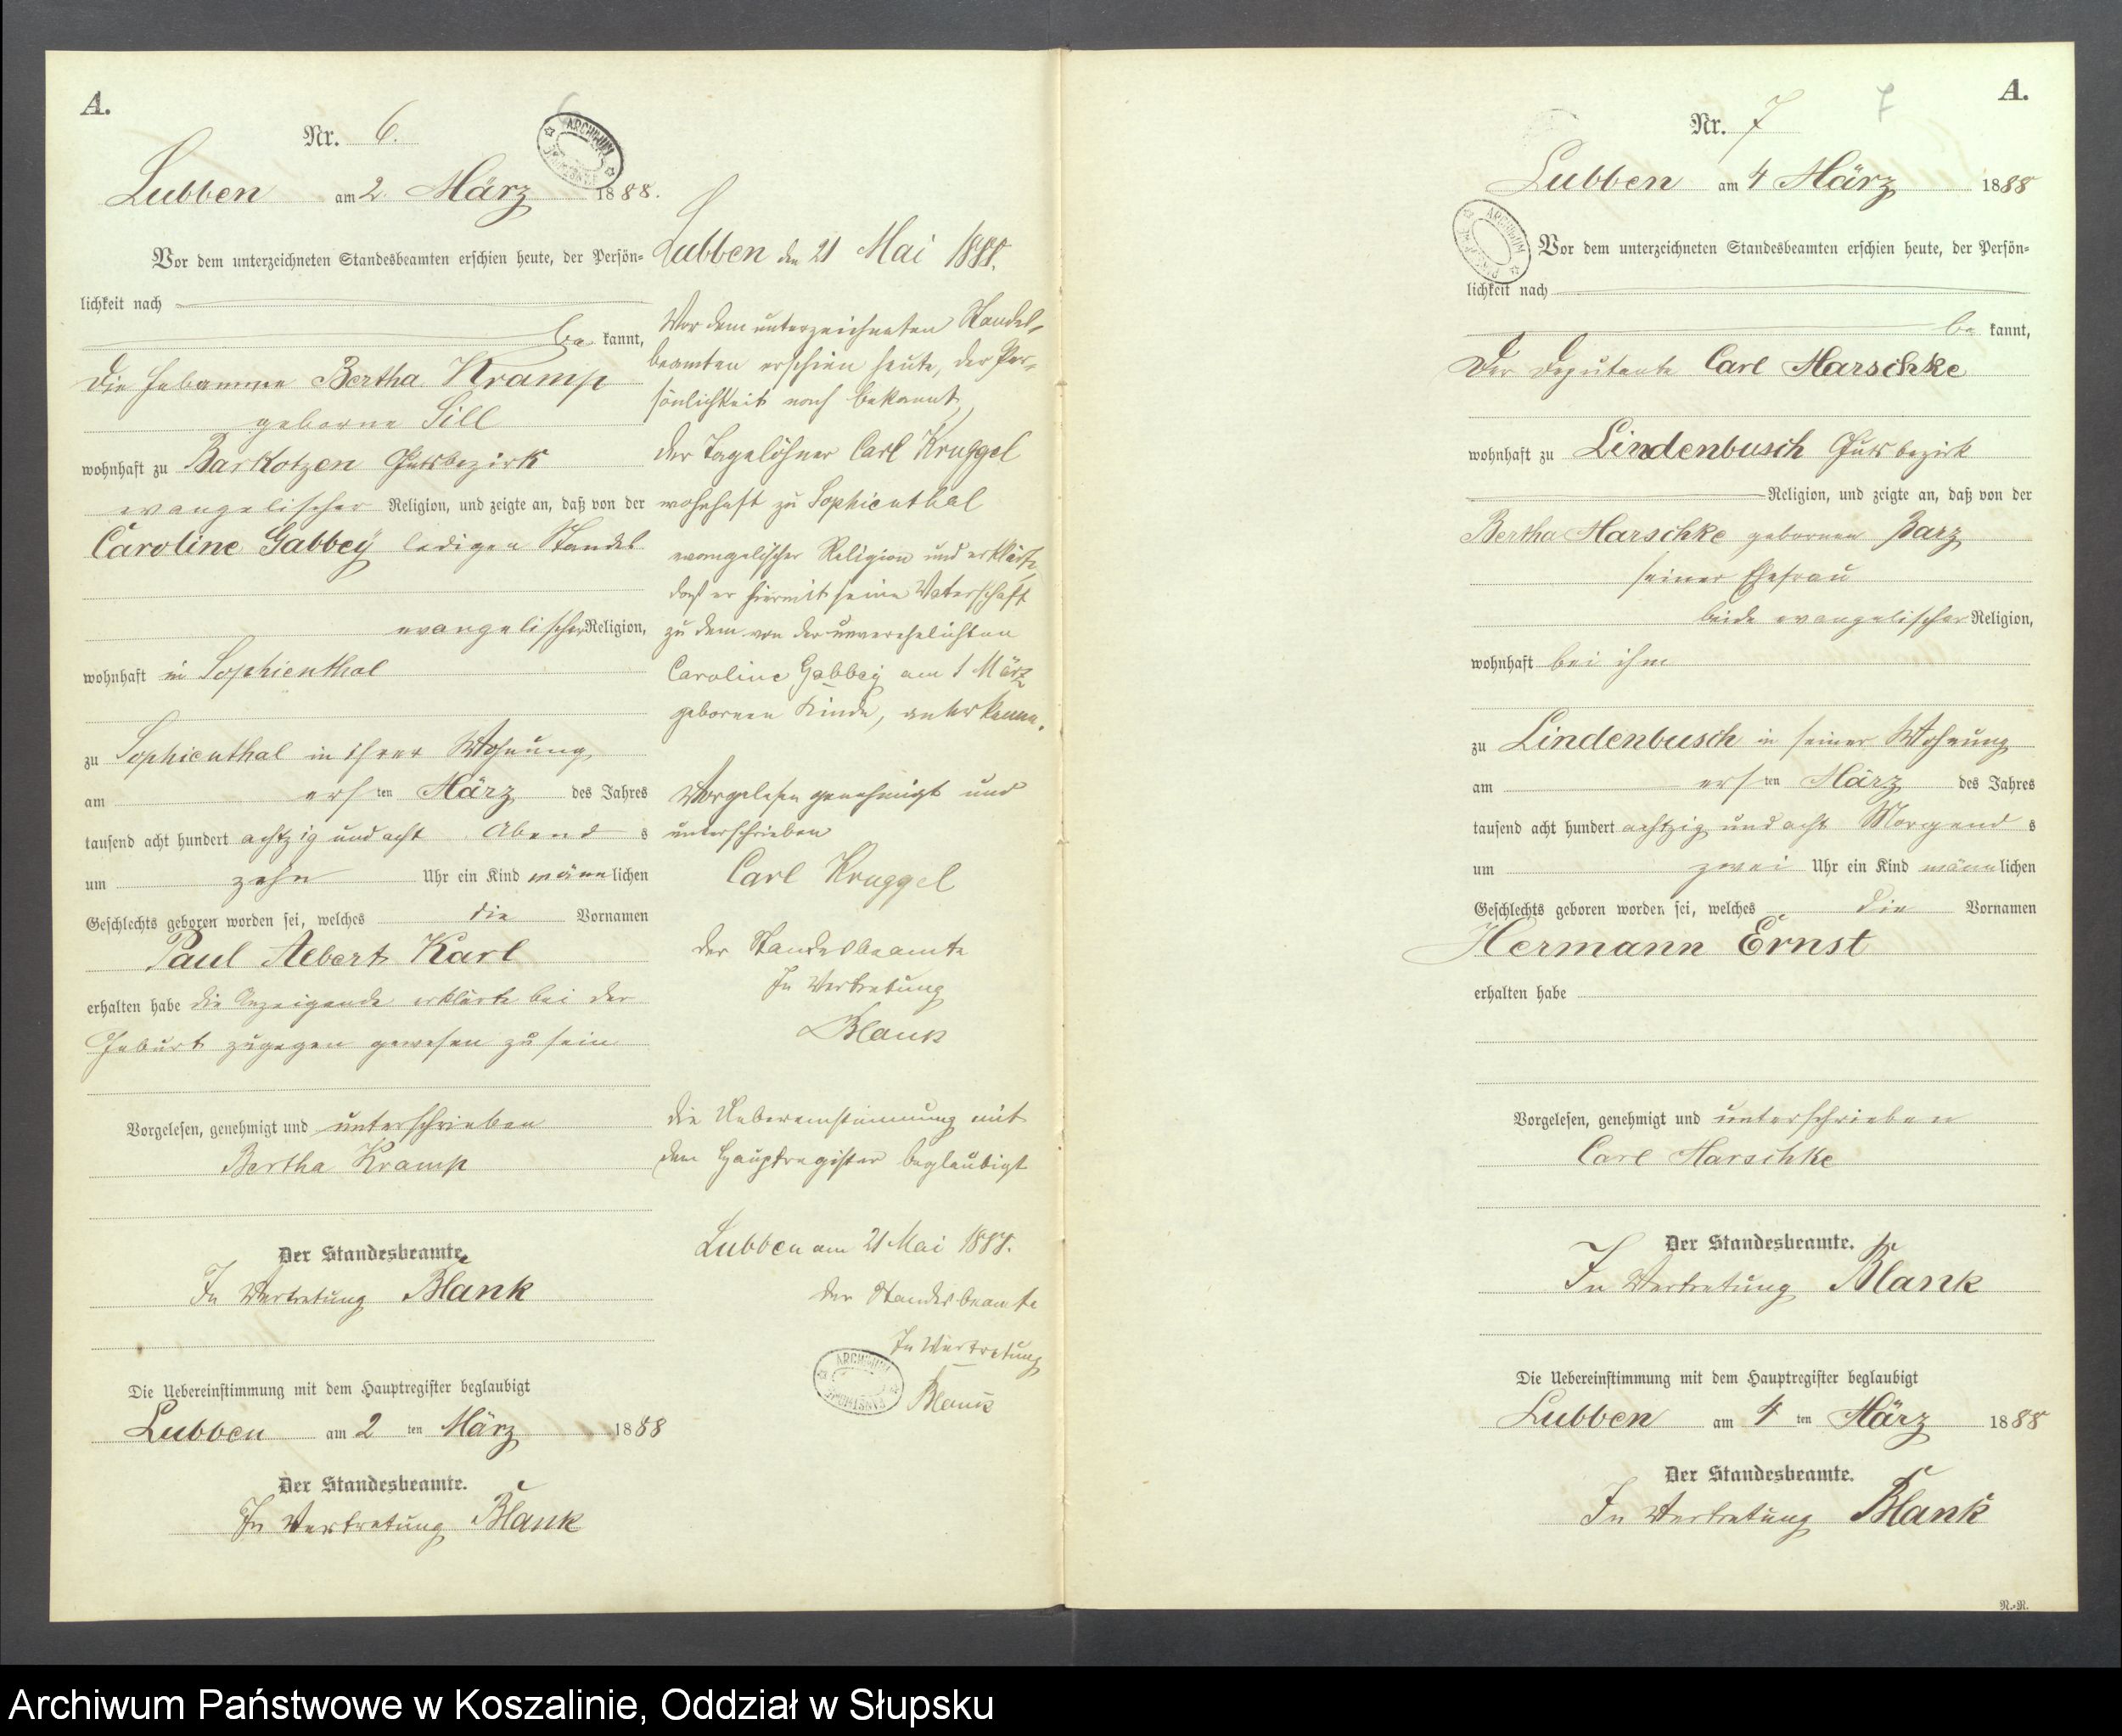 A.
Nr. 6.
6
ARCHIWUM
Lubben am 2. März 1888.
Vor dem unterzeichneten Standesbeamten erschien heute, der Persön-
lichkeit nach
be kannt,
die Hebamme Bertha Kramp
geborne Sill
wohnhaft zu Barkotzen Gutsbezirk
evangelischer Religion, und zeigte an, daß von der
Caroline Gabbey ledigen Standes
evangelischer Religion,
wohnhaft in Sophienthal
zu Sophienthal in ihrer Wohnung
am ersten März des Jahres
tausend acht hundert achtzig und acht Abends
um zehn Uhr ein Kind männlichen
Geschlechts geboren worden sei, welches die Vornamen
Paul Albert Karl
erhalten habe die Anzeigende erklärte bei der
Geburt zugegen gewesen zu sein
Vorgelesen, genehmigt und unterschrieben
Bertha Kramp
Der Standesbeamte.
In Vertretung Blank
Die Uebereinstimmung mit dem Hauptregister beglaubigt
Lubben am 2 ten März 1888
Der Standesbeamte.
In Vertretung Blank
Lubben den 21 Mai 1888.
Vor dem unterzeichneten Standes-
beamten erschien heute, der Per-
sönlichkeit nach bekannt,
der Tagelöhner Carl Kruggel
wohnhaft zu Sophienthal
evangelischer Religion und erklärte,
daß er hiermit seine Vaterschaft
zu dem von der unverehelichten
Caroline Gabbey am 1 März
gebornen Kinde, anerkenne.
Vorgelesen genehmigt und
unterschrieben
Carl Kruggel
der Standesbeamte
In Vertretung
Blank
die Uebereinstimmung mit
dem Hauptregister beglaubigt
Lubben am 21 Mai 1888.
der Standesbeamte
In Vertretung
ARCHIWUM
Blank
A.
Nr. 7
7
Lubben am 4 März 1888
ARCHIWUM
Vor dem unterzeichneten Standesbeamten erschien heute, der Persön-
lichkeit nach
be kannt,
Der Deputante Carl Marschke
wohnhaft zu Lindenbusch Gutsbezirk
Religion, und zeigte an, daß von der
Bertha Marschke gebornen Barz
seiner Ehefrau
beide evangelischer Religion,
wohnhaft bei ihm
zu Lindenbusch in seiner Wohnung
am ersten März des Jahres
tausend acht hundert achtzig und acht Morgends
um zwei Uhr ein Kind männlichen
Geschlechts geboren worden sei, welches die Vornamen
Hermann Ernst
erhalten habe
Vorgelesen, genehmigt und unterschrieben
Carl Marschke
Der Standesbeamte.
In Vertretung Blank
Die Uebereinstimmung mit dem Hauptregister beglaubigt
Lubben am 4 ten März 1888
Der Standesbeamte.
In Vertretung Blank
N.-N.
Archiwum Państwowe w Koszalinie, Oddział w Słupsku